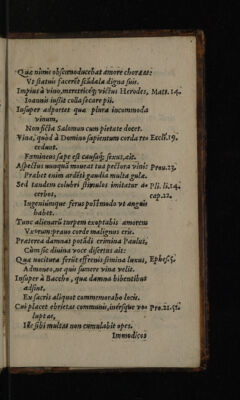 Quæ nimis obscœno ducebat amore choreas:
Vt statuit facere scādala digna suis.
Impius à vino, meretricéq; victus Herodes, Matt. 14.
Ioannis iussit colla secare pij.
Insuper adportet quæ plura incommoda
vinum,
Non ficta Salomon cum pietate docet.
Vina, quòd à Domino sapientum corda re= Eccli. 19.
cedunt.
Fœmineus sæpe est causáq; sexus, ait.
Aspectus nunquā moueat tua pectora vini: Prou. 23.
Præbet enim ardēti gaudia multa gulæ.
Sed tandem colubri stimulos imitatur a= Pli. li. 14.
cerbos, cap. 22.
Ingeniúmque ferus postmodo vt anguis
habet.
Tunc alienarū turpem exoptabis amorem
Vxorum: prauo corde malignus eris.
Præterea damnat potādi crimina Paulus,
Cùm sic diuina voce disertus ait:
Quæ nocitura ferūt effrenis flumina luxus, Ephes. 5.
Admoneo, ne quis sumere vina velit.
Insuper à Baccho, quæ damna bibentibus
adsint,
Ex sacris aliquot commemorabo locis.
Cui placet ebrietas communis, inérsque vo= Pro. 21. 31.
luptas,
Ille sibi multas non cumulabit opes.
Immodicos